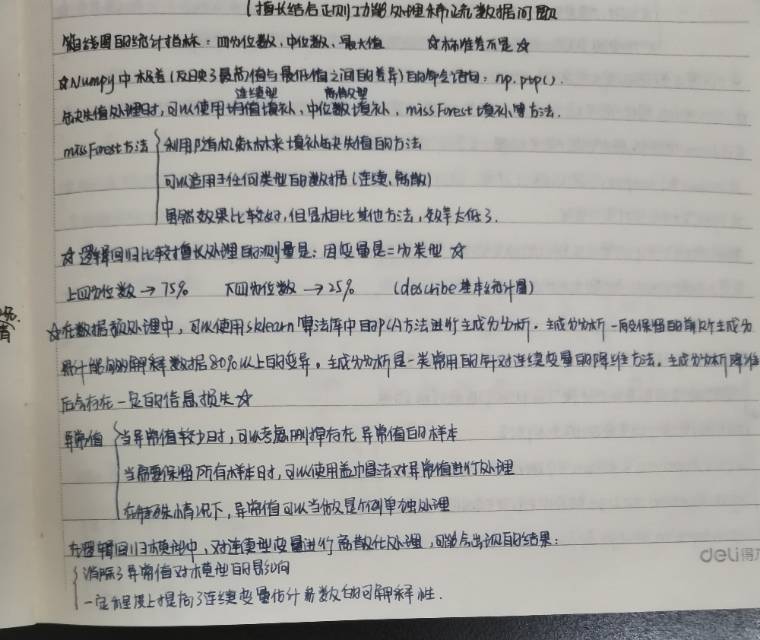 擅长结合正则功能处理稀疏数据问题
箱线图的统计指标：四分位数、中位数、最大值 ☆标准差不是☆
☆Numpy中极差（反映了最高值与最低值之间的差异）的命令语句：np.ptp().
连续型 离散型
缺失值处理时，可以使用均值填补、中位数填补、missForest填补等方法.
missForest方法 利用随机森林来填补缺失值的方法
可以适用于任何类型的数据（连续、离散）
虽然效果比较好，但是相比其他方法，效率太低了.
☆逻辑回归比较擅长处理的测量是：因变量是二分类型☆
上四分位数→75% 下四分位数→25% （describe基本统计图）
☆在数据预处理中，可以使用sklearn算法库中的PCA方法进行主成分分析。主成分分析一般保留的前几个主成分
累计能够解释数据80%以上的变异。主成分分析是一类常用的针对连续变量的降维方法。主成分分析降维
后会存在一定的信息损失☆
异常值 当异常值较少时，可以考虑删掉存在异常值的样本
当需要保留所有样本时，可以使用盖帽法对异常值进行处理
在特殊情况下，异常值可以当做是个例单独处理
在逻辑回归模型中，对连续型变量进行离散化处理，可能会出现的结果：
消除了异常值对模型的影响
一定程度上提高了连续变量估计系数的可解释性.
deli得力